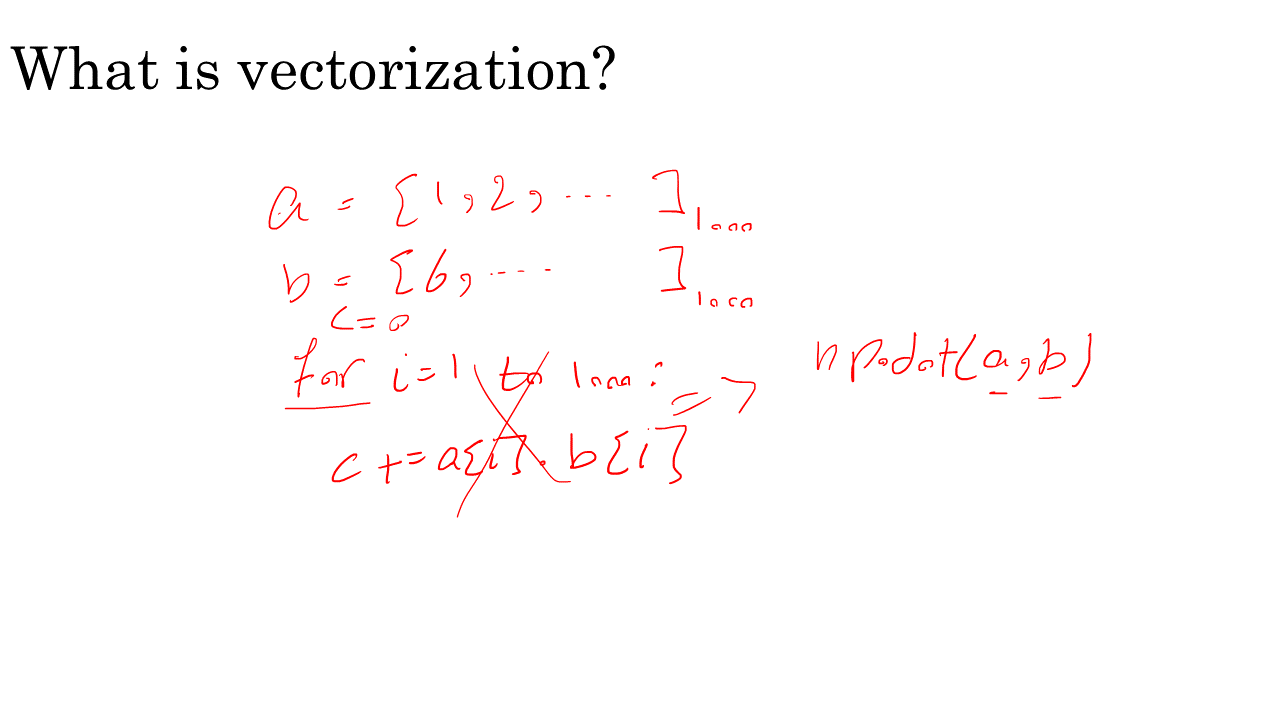 What is vectorization?
a = [1, 2, ... ]1000
b = [6, ... ]1000
c = 0
for i=1 to 1000: => np.dot(a,b)
c += a[i]. b[i]